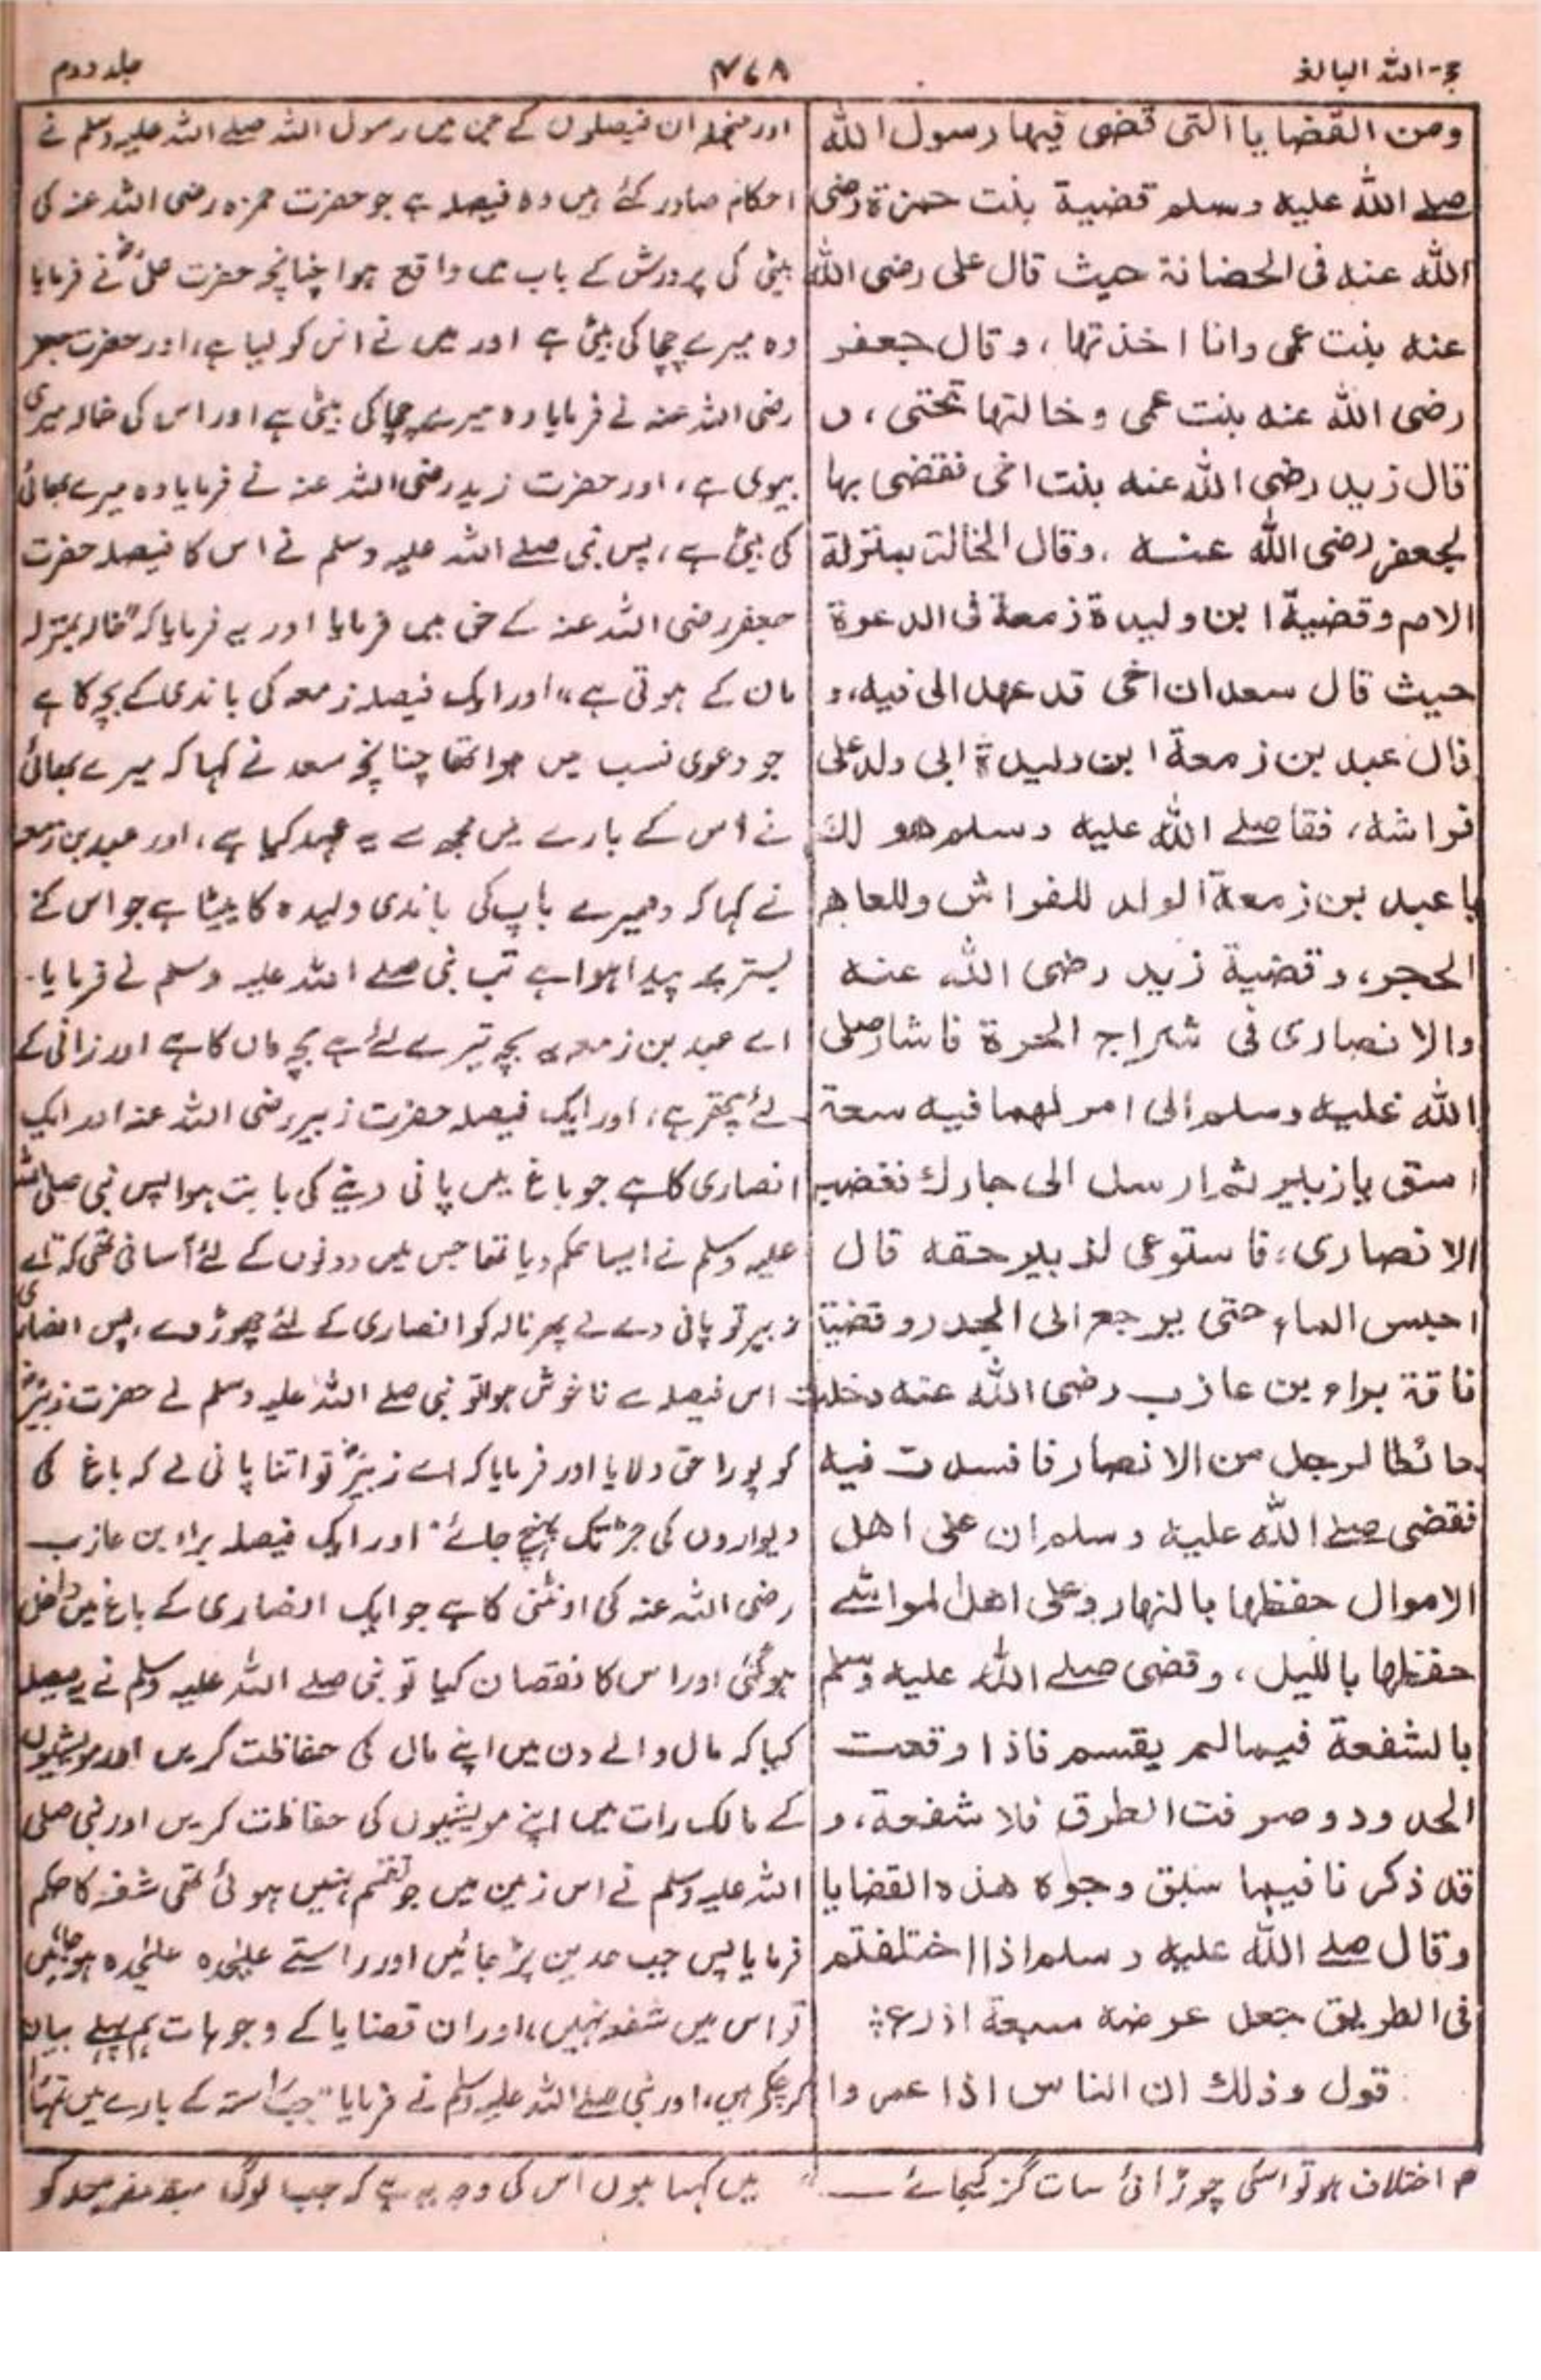 حجۃ اللہ البالغہ
۴۶۸
جلد دوم
ومن القضایا التی قضی فیها رسول الله
صلے الله علیه وسلم قضیة بنت حمزة رضی
الله عنه فی الحضانة حیث قال علی رضی الله
عنه بنت عمی وانا اخذتها، وقال جعفر
رضی الله عنه بنت عمی وخالتها تحتی، و
قال زید رضی الله عنه بنت اخی فقضی بها
لجعفر رضی الله عنه، وقال الخالة بمنزلة
الام وقضیة ابن ولیدة زمعة فی الدعوة
حیث قال سعد ان اخی قد عهد الی فیه، و
قال عبد بن زمعة ابن ولیدة ابی ولد علی
فراشه، فقا صلے الله علیه وسلم هو لك
یا عبد بن زمعة الولد للفراش وللعاهر
الحجر، وقضیة زید رضی الله عنه
والانصاری فی شراج الحرة فاشار صلی
الله علیه وسلم الی امر لهما فیه سعة
اسق یا زبیر ثم ارسل الی جارك فغضب
الانصاری، فاستوعی لزبیر حقه قال
احبس الماء حتی یرجع الی الجدر وقضیة
ناقة براء بن عازب رضی الله عنه دخلت
حائطا لرجل من الانصار فافسدت فیه
فقضی صلے الله علیه وسلم ان علی اهل
الاموال حفظها بالنهار وعلی اهل المواشے
حفظها باللیل، وقضی صلے الله علیه وسلم
بالشفعة فیما لم یقسم فاذا وقعت
الحدود وصرفت الطرق فلا شفعة، و
قد ذکرنا فیما سبق وجوه هذه القضایا
وقال صلے الله علیه وسلم اذا اختلفتم
فی الطریق جعل عرضه سبعة اذرع؛
قول وذلك ان الناس اذا عمروا
اور منجملہ ان فیصلوں کے جن میں رسول اللہ صلے اللہ علیہ وسلم نے
احکام صادر کئے ہیں وہ فیصلہ ہے جو حضرت حمزہ رضی اللہ عنہ کی
بیٹی کی پرورش کے باب میں واقع ہوا چنانچہ حضرت علیؓ نے فرمایا
وہ میرے چچا کی بیٹی ہے اور میں نے اس کو لیا ہے، اور حضرت جعفر
رضی اللہ عنہ نے فرمایا وہ میرے چچا کی بیٹی ہے اور اس کی خالہ میری
بیوی ہے، اور حضرت زید رضی اللہ عنہ نے فرمایا وہ میرے بھائی
کی بیٹی ہے، پس نبی صلے اللہ علیہ وسلم نے اس کا فیصلہ حضرت
جعفر رضی اللہ عنہ کے حق میں فرمایا اور یہ فرمایا کہ "خالہ بمنزلہ
ماں کے ہوتی ہے،" اور ایک فیصلہ زمعہ کی باندی کے بچہ کا ہے
جو دعوی نسب میں ہوا تھا چنانچہ سعد نے کہا کہ میرے بھائی
نے اس کے بارے میں مجھ سے یہ عہد کیا ہے، اور عبد بن زمعہ
نے کہا کہ وہ میرے باپ کی باندی ولیدہ کا بیٹا ہے جو اس کے
بستر پر پیدا ہوا ہے تب نبی صلے اللہ علیہ وسلم نے فرمایا۔
اے عبد بن زمعہ یہ بچہ تیرے لئے ہے بچہ ماں کا ہے اور زانی کے
لئے پتھر ہے، اور ایک فیصلہ حضرت زبیر رضی اللہ عنہ اور ایک
انصاری کا ہے جو باغ میں پانی دینے کی بابت ہوا پس نبی صلی اللہ
علیہ وسلم نے ایسا حکم دیا تھا جس میں دونوں کے لئے آسانی تھی کہ "اے
زبیر تو پانی دے لے پھر نالہ کو انصاری کے لئے چھوڑ دے، پس انصاری
اس فیصلہ سے ناخوش ہوا تو نبی صلے اللہ علیہ وسلم نے حضرت زبیرؓ
کو پورا حق دلایا اور فرمایا کہ اے زبیرؓ تو اتنا پانی لے کہ باغ کی
دیواروں کی جڑ تک پہنچ جائے" اور ایک فیصلہ براء بن عازب
رضی اللہ عنہ کی اونٹنی کا ہے جو ایک انصاری کے باغ میں داخل
ہوگئی اور اس کا نقصان کیا تو نبی صلے اللہ علیہ وسلم نے یہ فیصلہ
کیا کہ مال والے دن میں اپنے مال کی حفاظت کریں اور مویشیوں
کے مالک رات میں اپنے مویشیوں کی حفاظت کریں اور نبی صلی
اللہ علیہ وسلم نے اس زمین میں جو تقسیم نہیں ہوئی تھی شفعہ کا حکم
فرمایا پس جب حدیں پڑ جائیں اور راستے علیحدہ علیحدہ ہو جائیں
تو اس میں شفعہ نہیں، اور ان قضایا کے وجوہات ہم پہلے بیان
کر چکے ہیں، اور نبی صلے اللہ علیہ وسلم نے فرمایا "جب راستہ کے بارے میں تمہارا
م اختلاف ہو تو اسکی چوڑائی سات گز کیجائے ــ" میں کہتا ہوں اس کی وجہ یہ ہے کہ جب لوگ